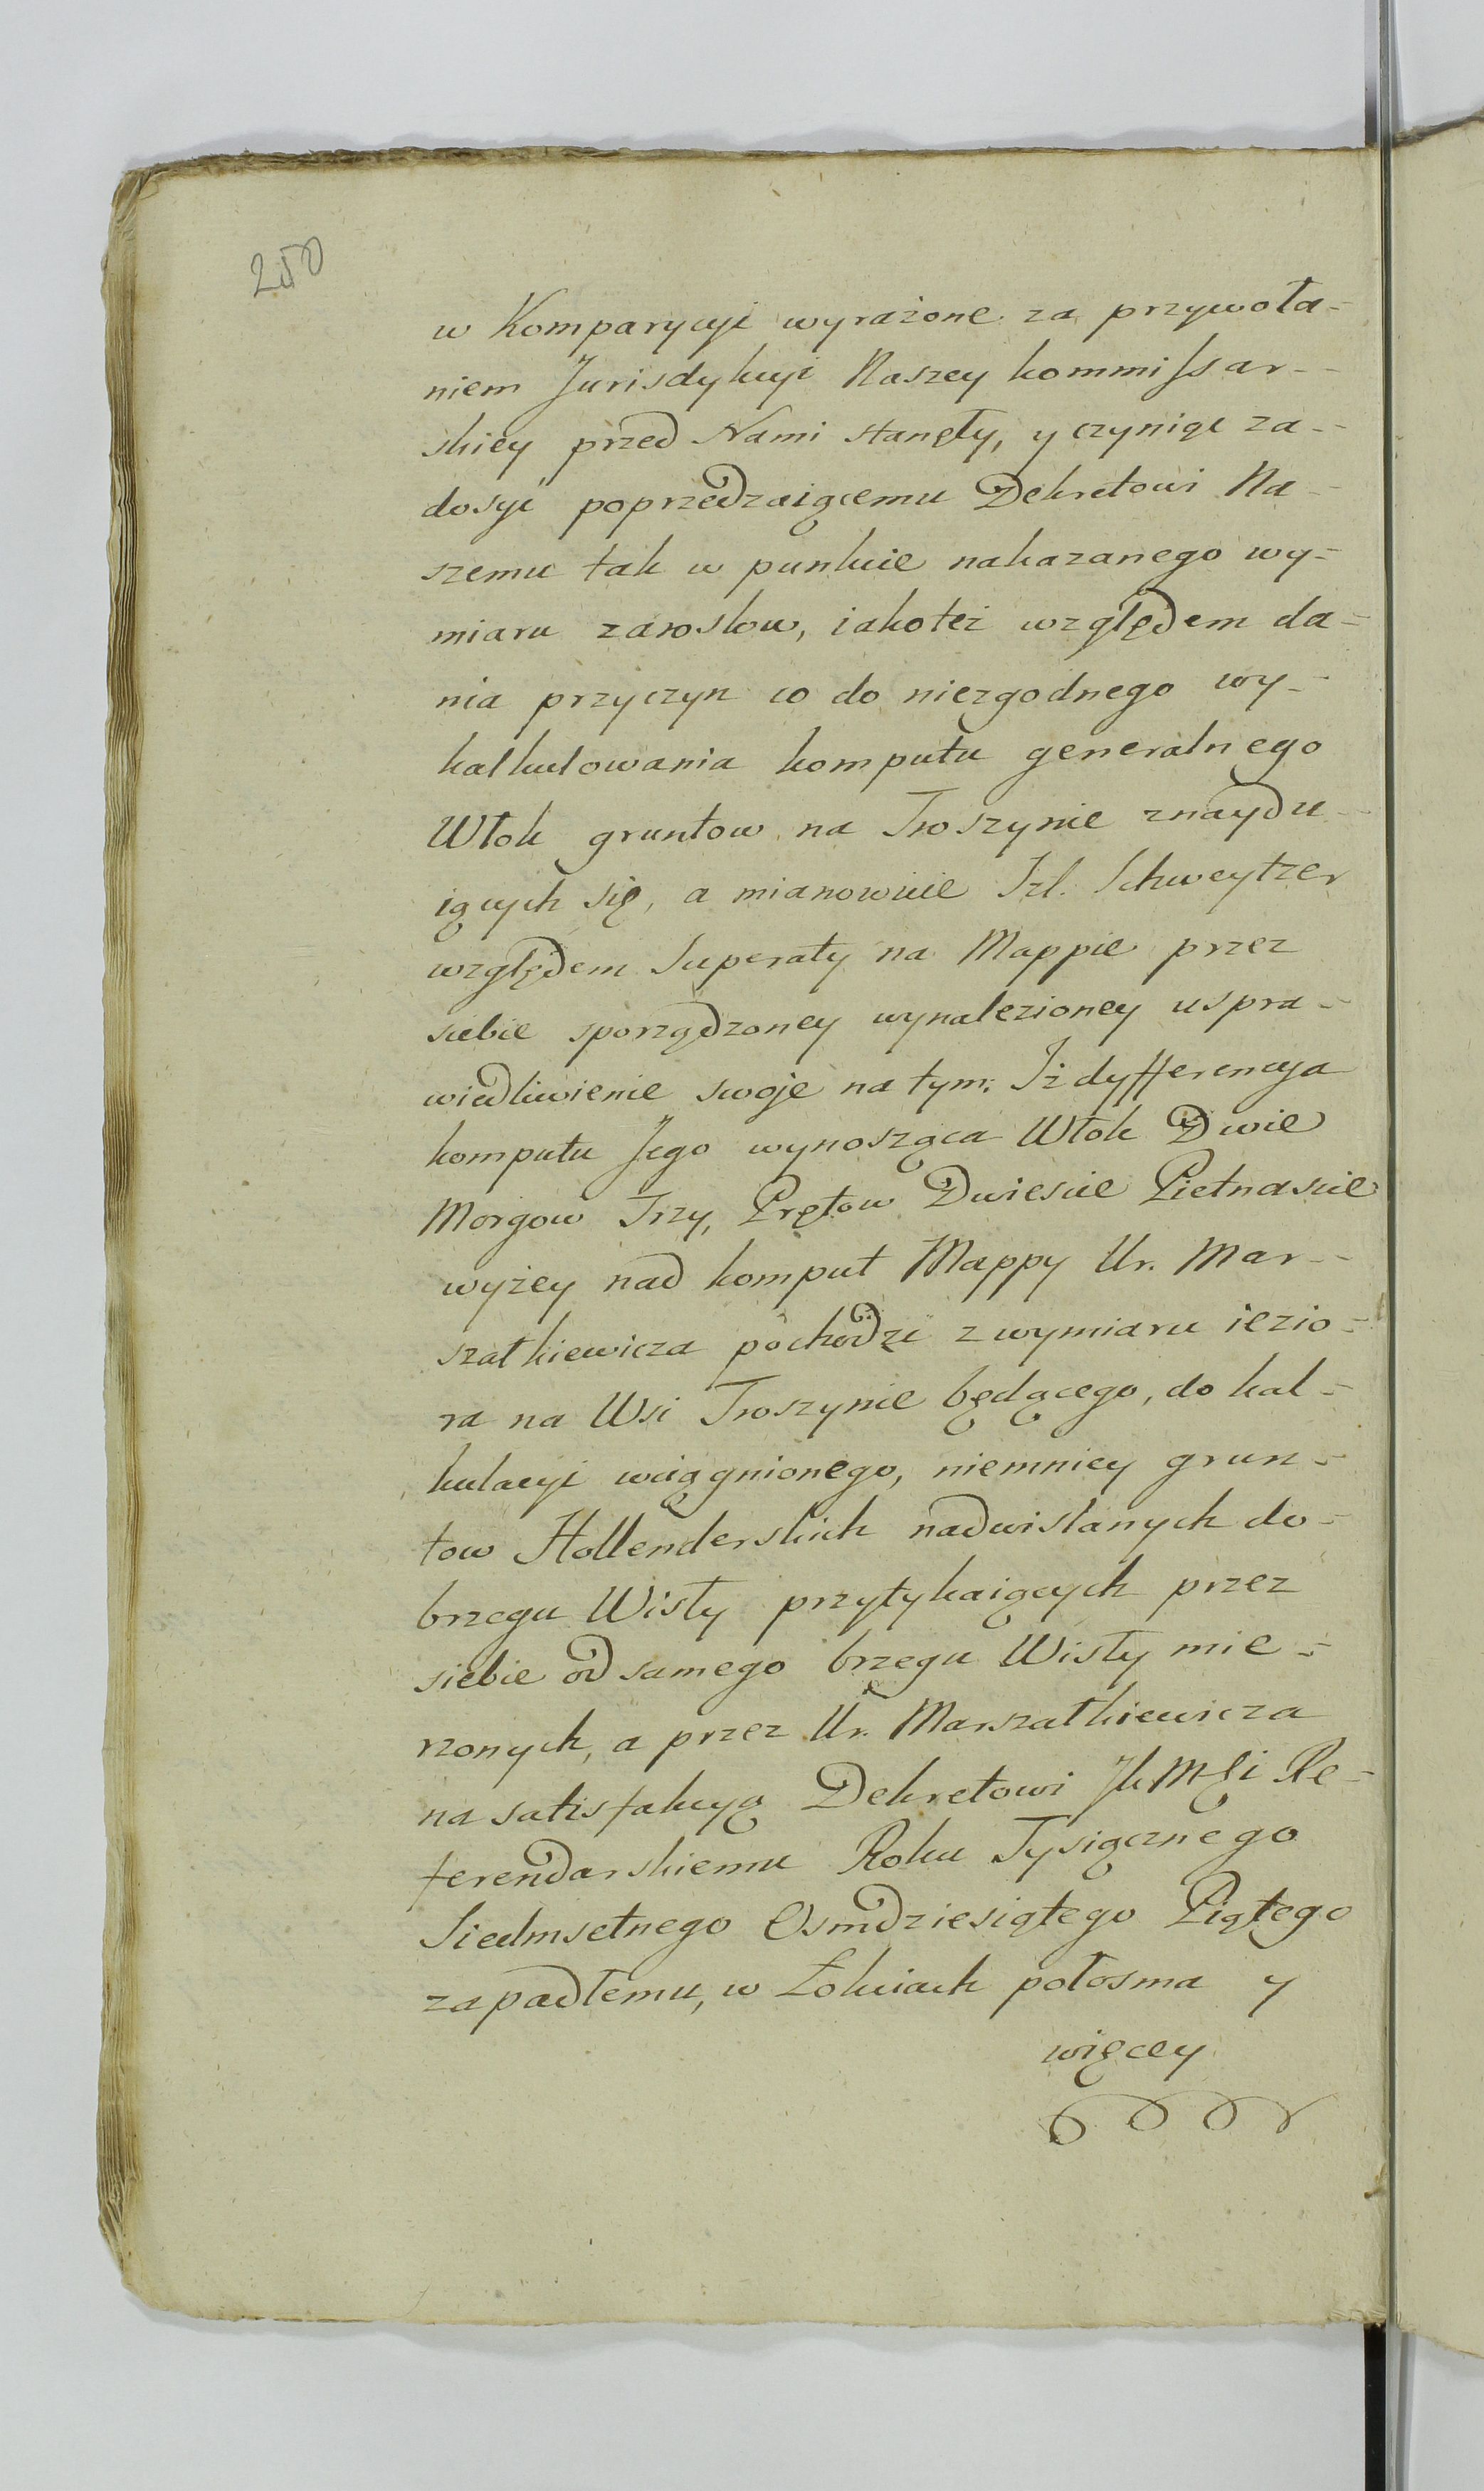 250
w Komparycyi wyrażone za przywoła-
niem Jurisdykcyi Naszey kommissar-
skiey przed Nami stanęły, y czyniąc za-
dosyć poprzedzaiącemu Dekretowi Na-
szemu tak w punkcie nakazanego wy-
miaru zarosłow, iakoteż względem da-
nia przyczyn co do niezgodnego wy-
kalkulowania komputu generalnego
Włok gruntow na Troszynie znaydu-
iących się, a mianowicie Szl. Schweytzer
względem Superaty na Mappie przez
siebie sporządzoney wynalezioney uspra-
wiedliwienie swoje na tym: Iż dyfferencya
komputu Jego wynosząca Włok Dwie
Morgow Trzy, Prętow Dwieście Pietnaście
wyżey nad komput Mappy Ur. Mar-
szałkiewicza pochodzi z wymiaru iezio-
ra na Wsi Troszynie będącego, do kal-
kulacyi wciągnionego, niemniey grun-
tow Hollenderskich nadwislanych do
brzegu Wisły przytykaiących przez
siebie od samego brzegu Wisły mie-
rzonych, a przez Ur. Marszałkiewicza
na satisfakcyą Dekretowi JKMści Re-
ferendarskiemu Roku Tysiącznego
Siedmsetnego Osmdziesiątego Piątego
zapadłemu, w Łokciach połosma y
więcey